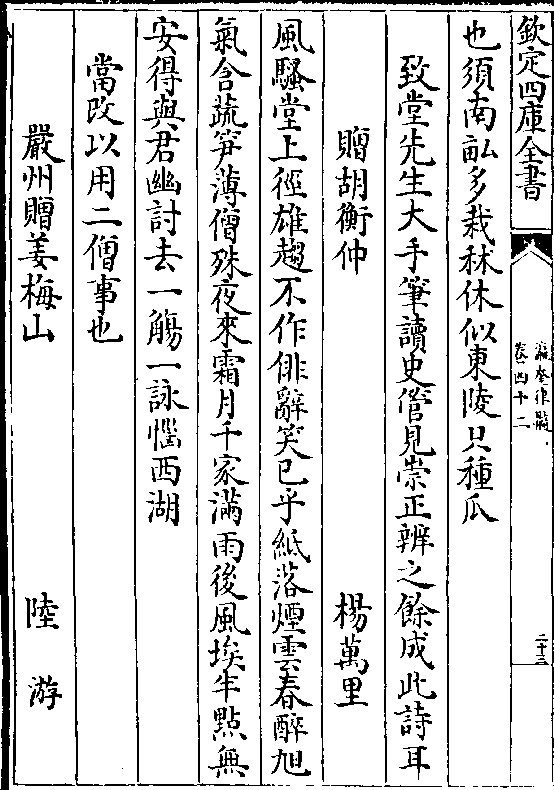 欽定四庫全書
瀛奎律髓
卷四十二
二十三
也須南畝多栽秫休似東陵只種瓜
致堂先生大手筆讀史管見崇正辨之餘成此詩耳
贈胡衡仲 楊萬里
風騷堂上徑雄趨不作俳辭笑已乎紙落煙雲春醉旭
氣含蔬笋薄僧殊夜來霜月千家滿雨後風埃半點無
安得與君幽討去一觴一詠惱西湖
當改以用二僧事也
嚴州贈姜梅山 陸游